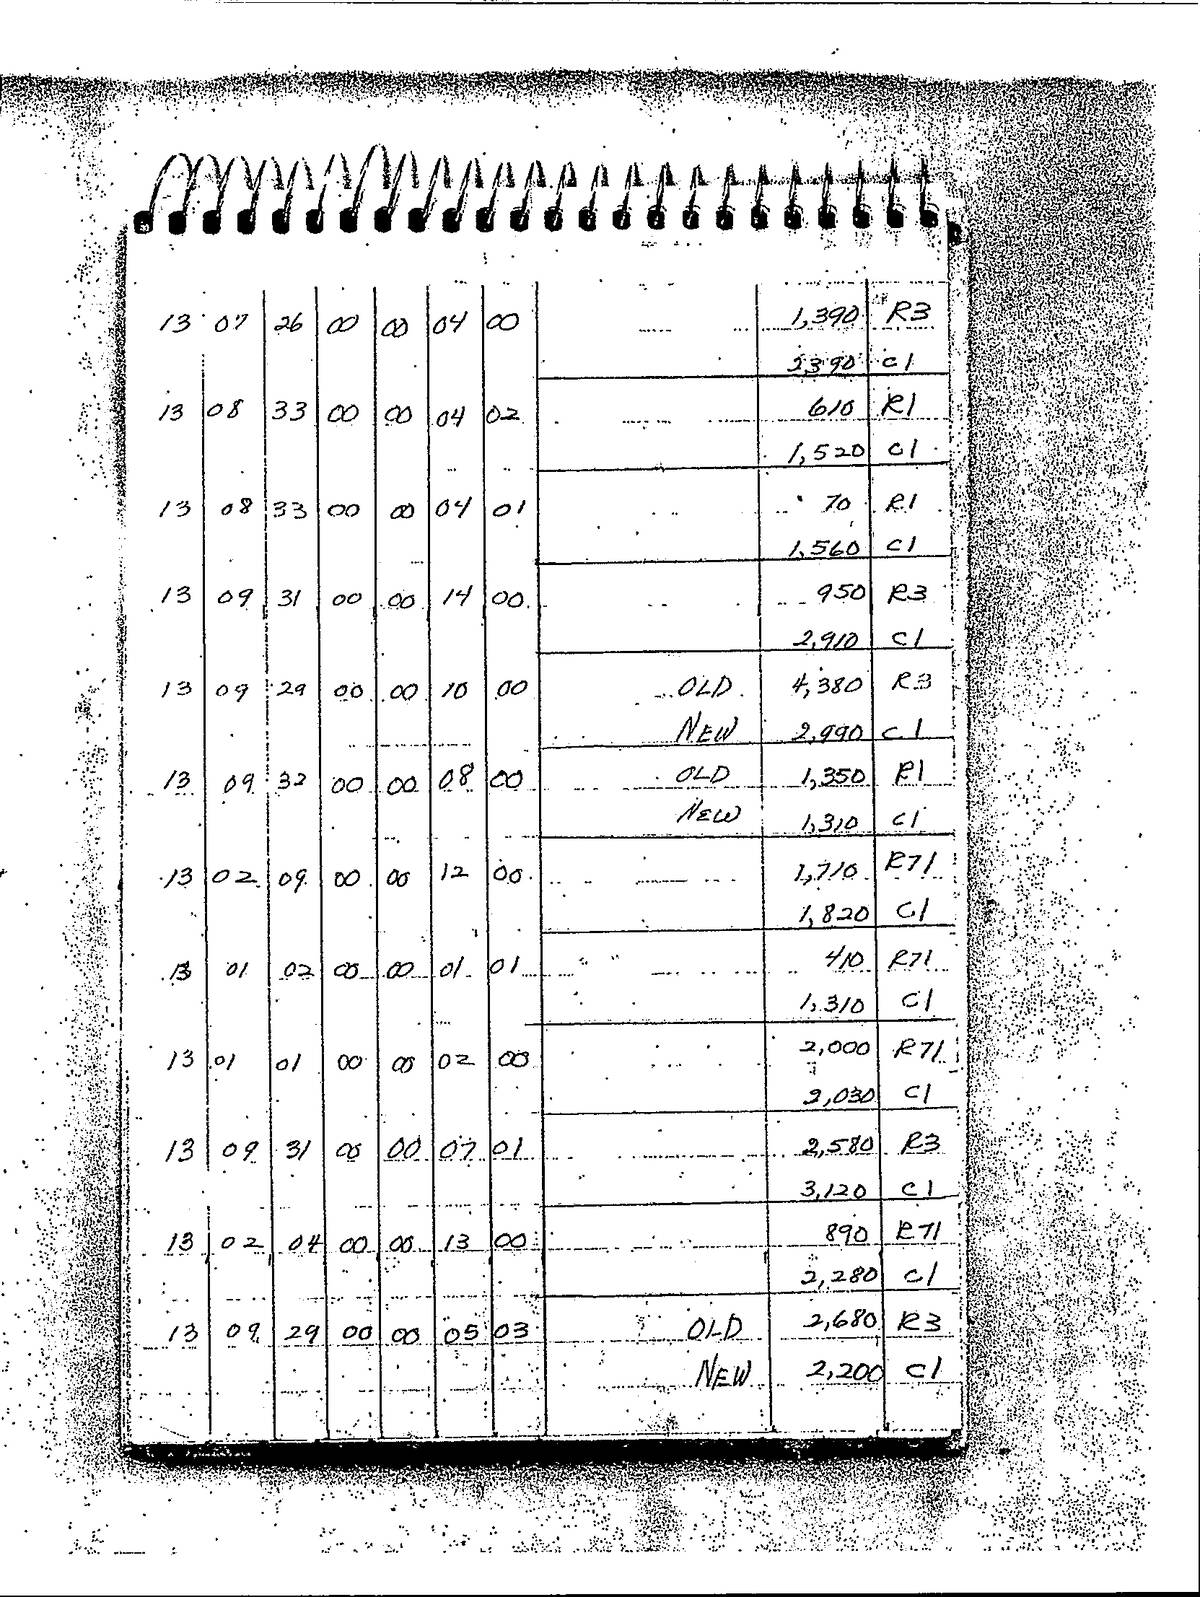 13 07 26 00 00 04 00 1,390 R3
2,390 C1
13 08 33 00 00 04 02 610 R1
1,520 C1
13 08 33 00 00 04 01 70 R1
1,560 C1
13 09 31 00 00 14 00 950 R3
2,910 C1
13 09 29 00 00 10 00 OLD 4,380 R3
NEW 2,990 C1
13 09 32 00 00 08 00 OLD 1,350 R1
NEW 1,310 C1
13 02 09 00 00 12 00 1,710 R71
1,820 C1
13 01 02 00 00 01 01 410 R71
1,310 C1
13 01 01 00 00 02 00 2,000 R71
2,030 C1
13 09 31 00 00 07 01 2,580 R3
3,120 C1
13 02 04 00 00 13 00 890 R71
2,280 C1
13 09 29 00 00 05 03 OLD 2,680 R3
NEW 2,200 C1